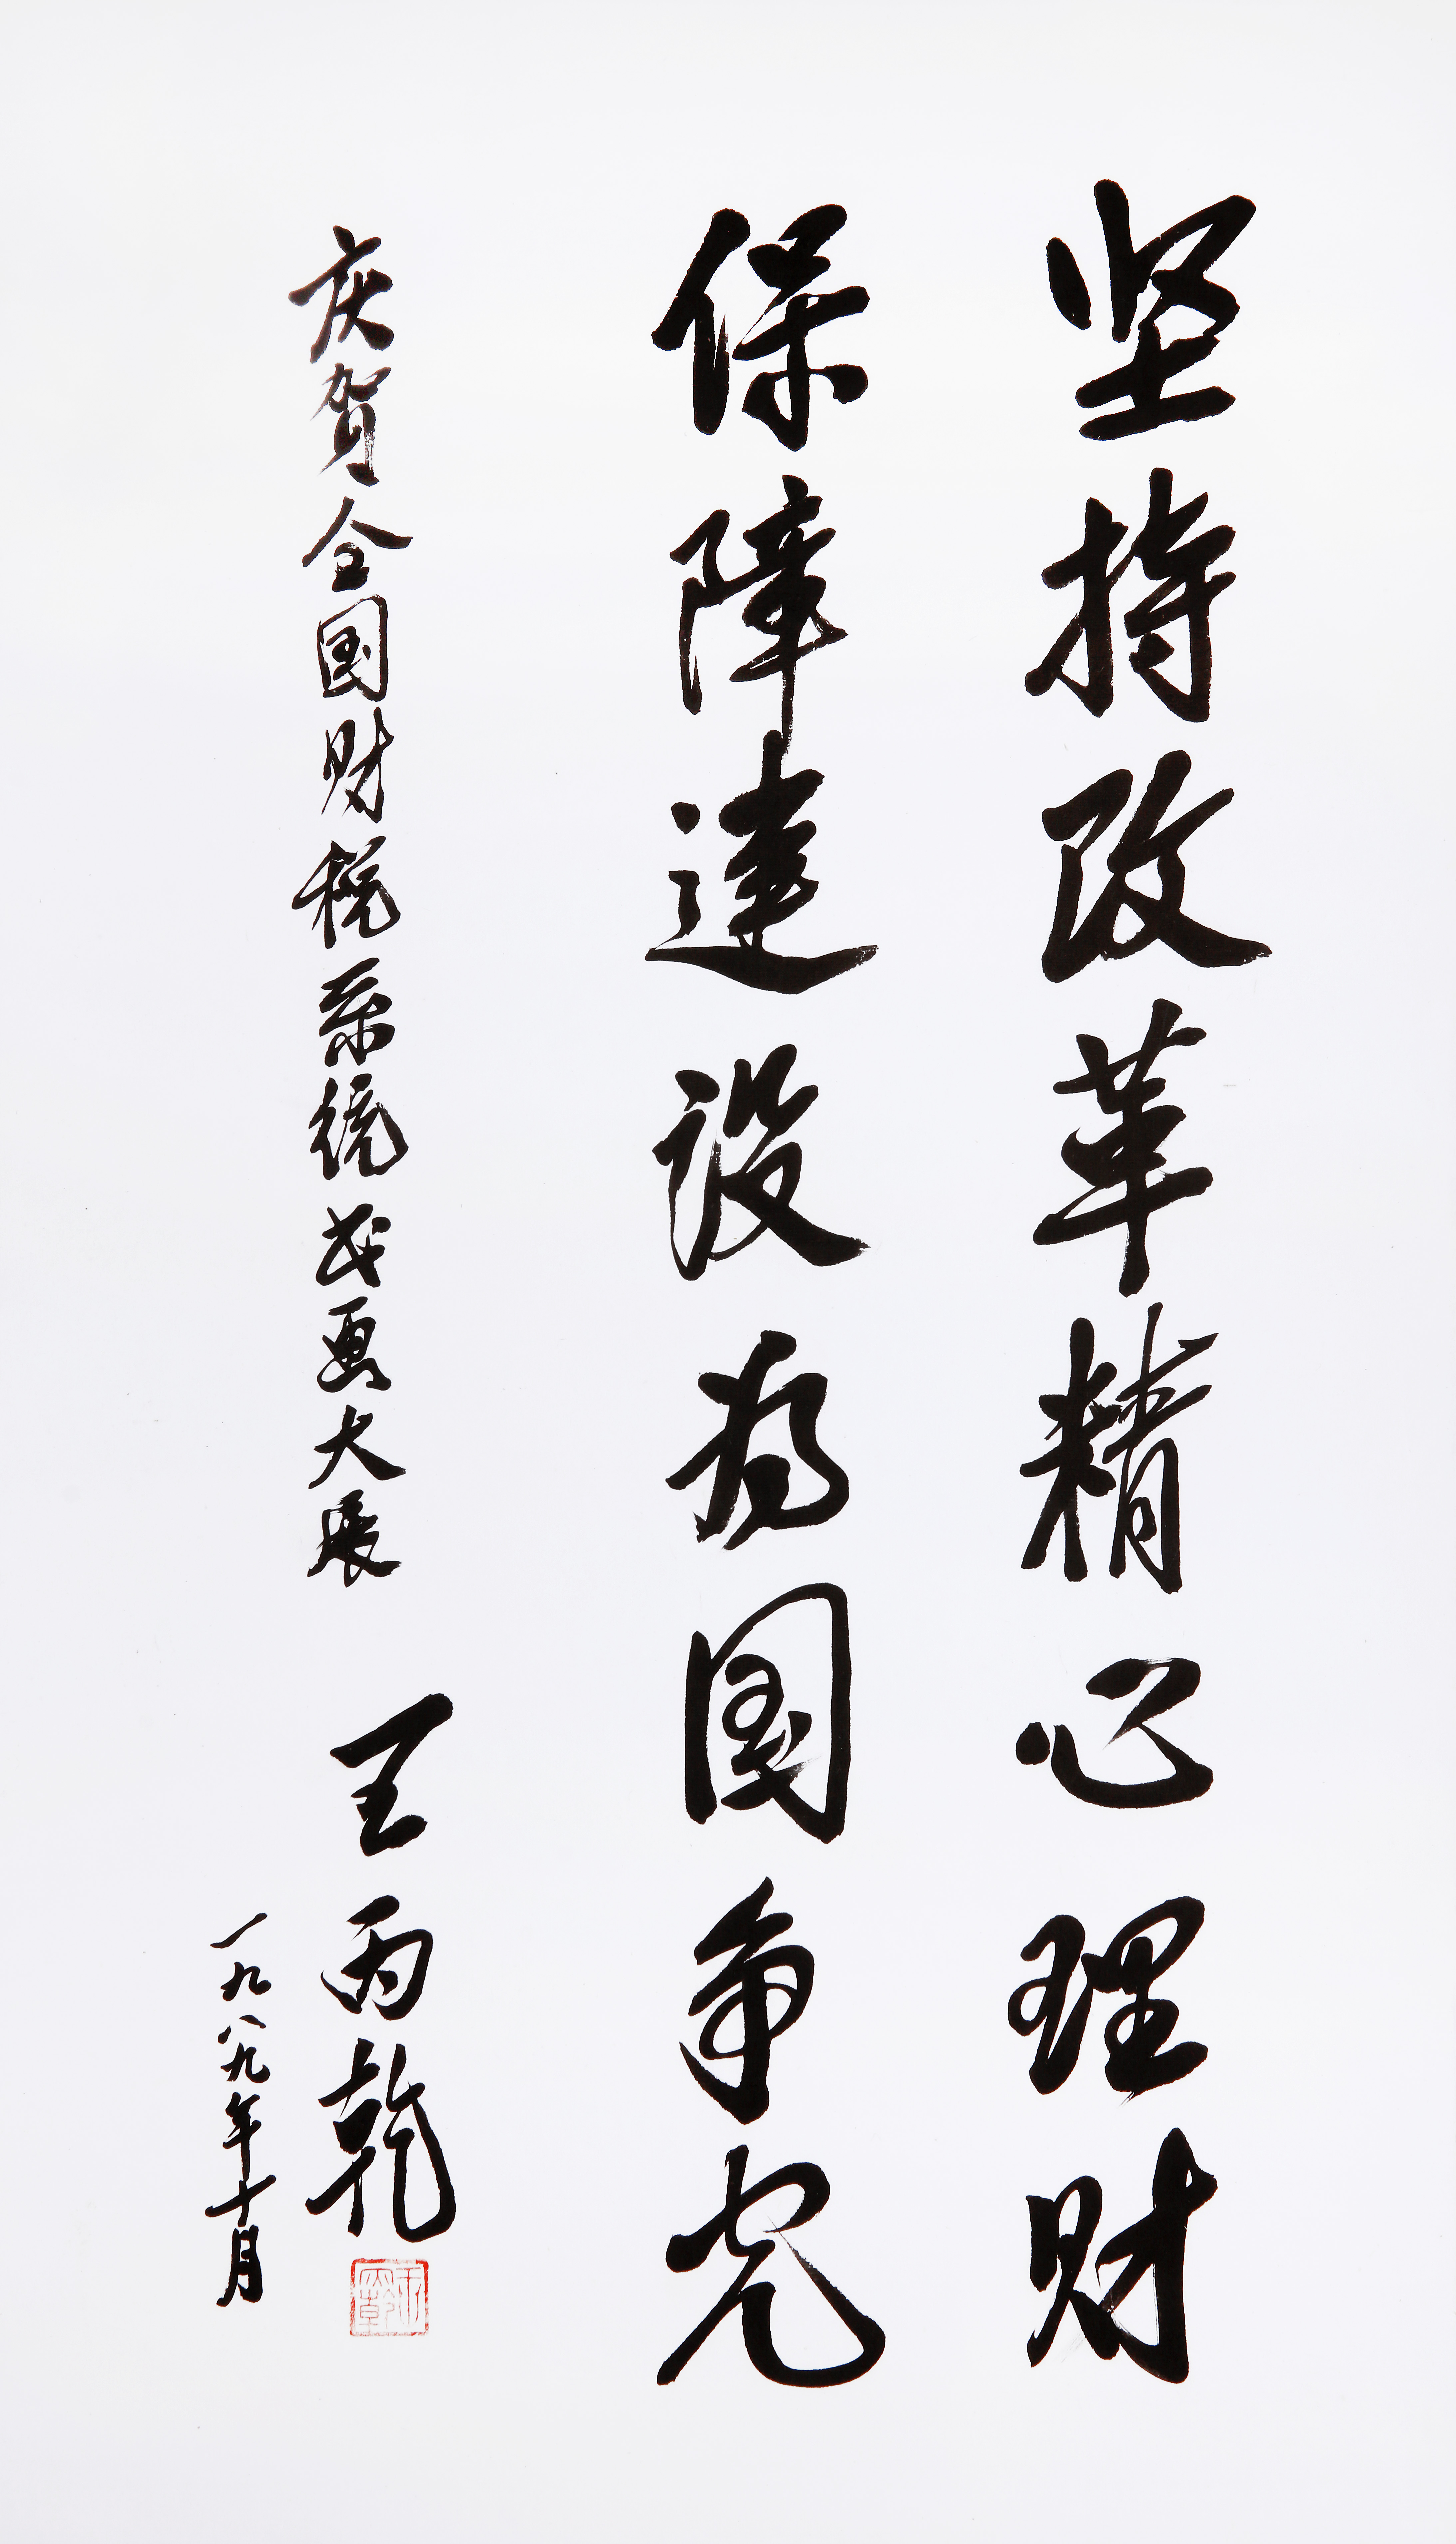 坚持改革精心理财
保障建设为国争光
庆贺全国财税系统书画大展
王丙乾
一九八九年十月